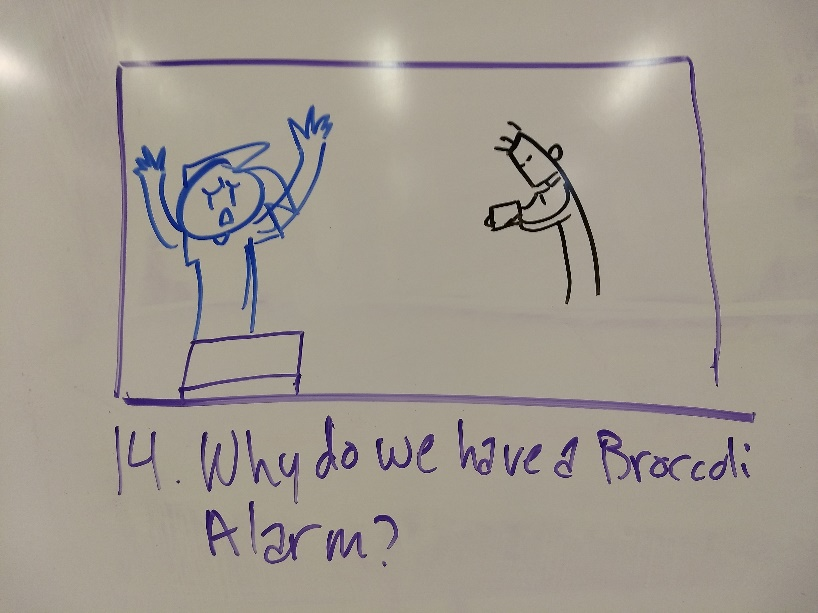 14. Why do we have a Broccoli
Alarm?